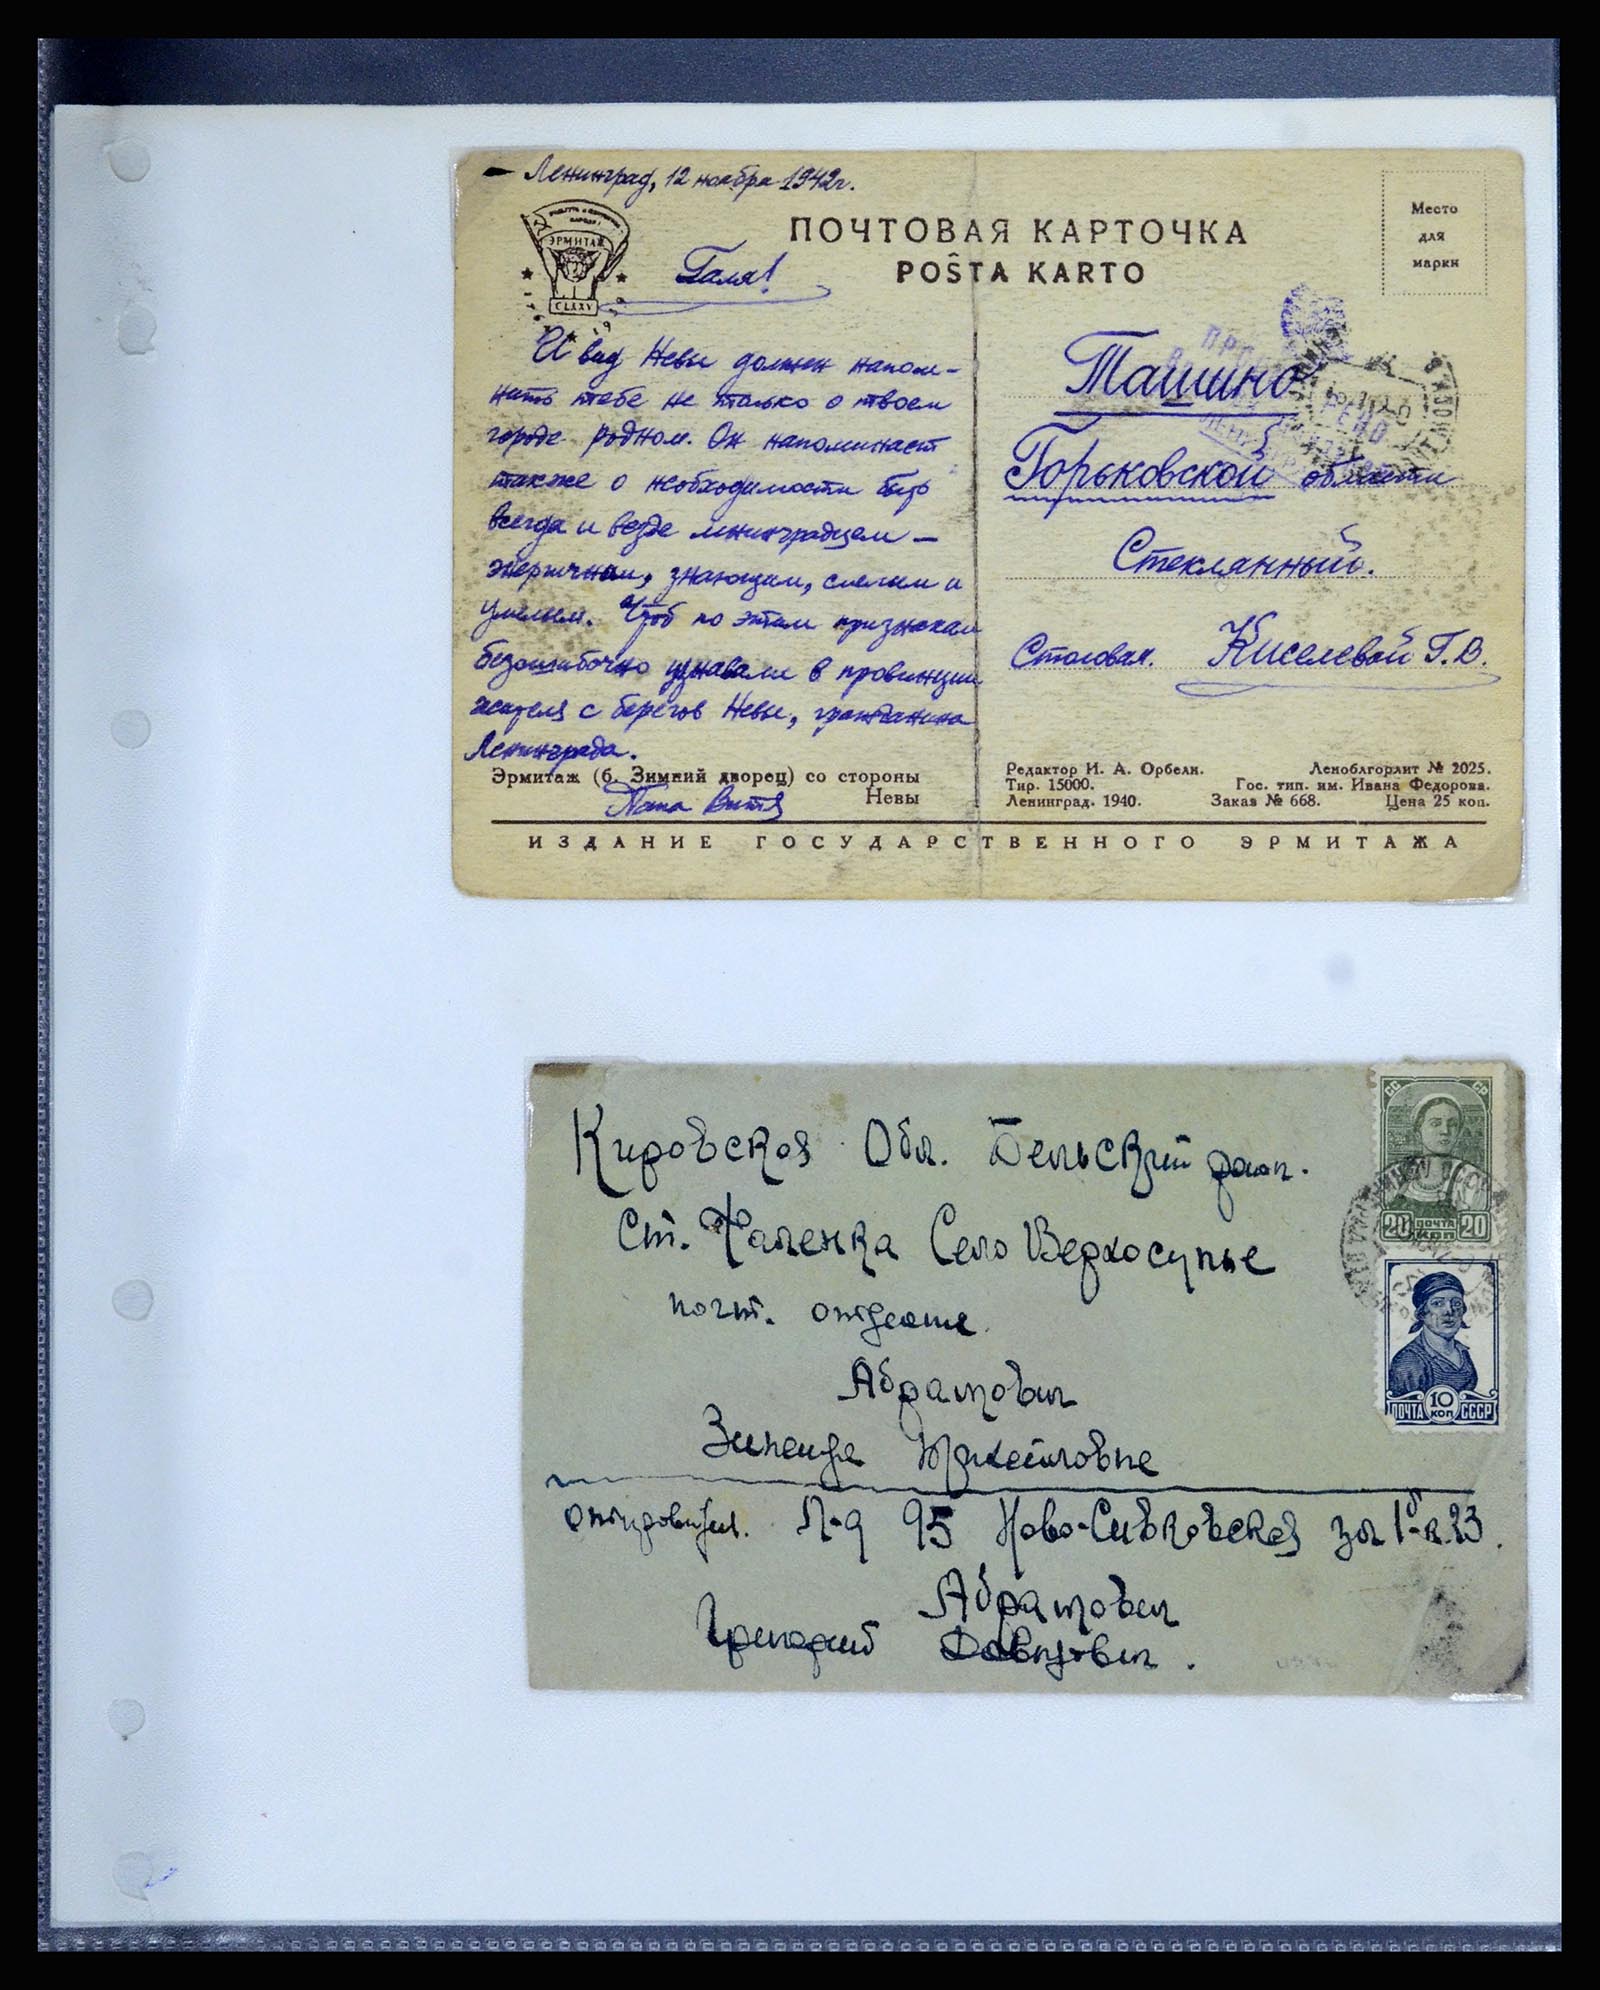 Ленинград, 12 ноября 1942г.
ЭРМИТАЖ
CLXXV
ПОЧТОВАЯ КАРТОЧКА
POŜTA KARTO
Место
для
марки
Галя!
И вид Невы должен напом-
нить тебе не только о твоем
городе родном. Он напоминает
также о необходимости быть
всегда и везде ленинградцем –
энергичным, знающим, смелым и
умелым. Чтоб по этим признакам
безошибочно узнавали в провинции
жителя с берегов Невы, гражданина
Ленинграда.
Папа Витя
Эрмитаж (б. Зимний дворец) со стороны
Невы
Ташино
Горьковской области
Стеклянный.
Столовая. Киселевой Г.В.
Редактор И. А. Орбели. Леноблгорлит № 2025.
Тир. 15000. Гос. тип. им. Ивана Федорова.
Ленинград. 1940. Заказ № 668. Цена 25 коп.
ИЗДАНИЕ ГОСУДАРСТВЕННОГО ЭРМИТАЖА
СС СР
20 ПОЧТА 20
КОП
10
ПОЧТА КОП СССР
Кировская Обл. Бельский район.
Ст. Фаленка Село Верхосунье
почт. отделение
Абрамович
Зинаиде Михайловне
отправител. Л-д 95 Ново-Сивковская
Абрамович
Григорий Давидович.